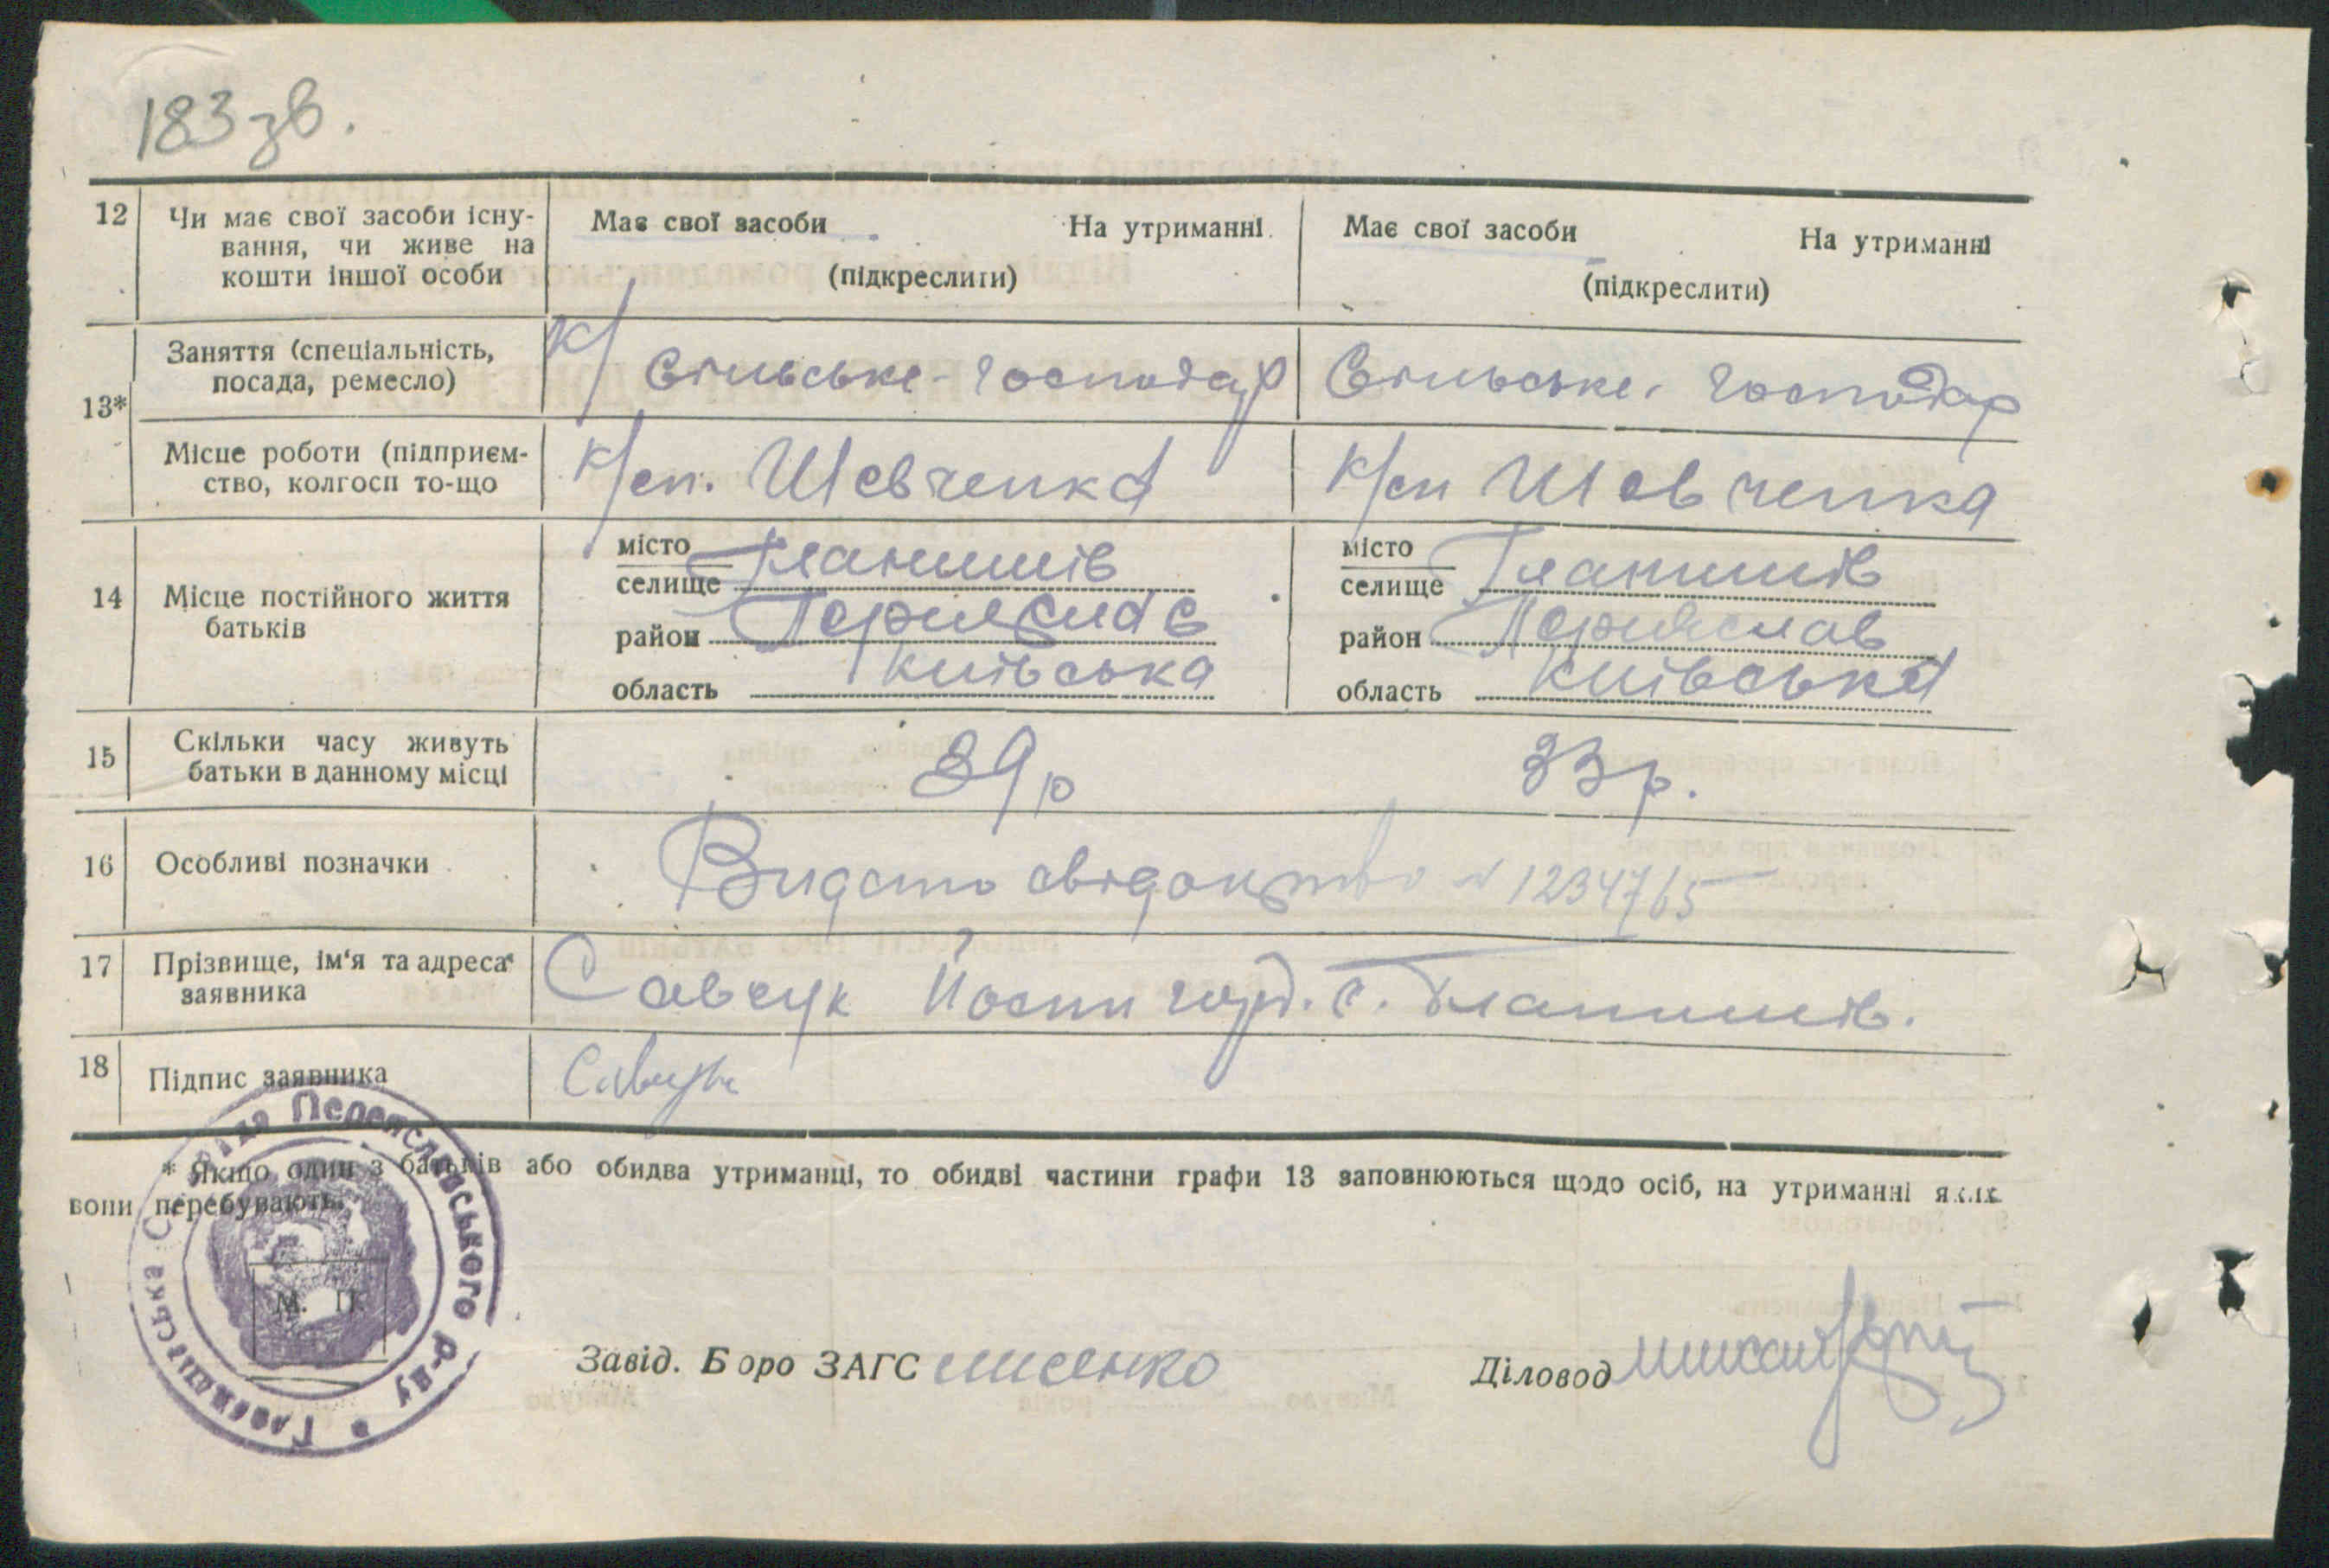 183 зв.
12 Чи має свої засоби існу- Має свої засоби На утриманні Має свої засоби На утриманні
вання, чи живе на
кошти іншої особи (підкреслити) (підкреслити)
13* Заняття (спеціальність, к/ Сільське-господар Сільське. господар
посада, ремесло)
Місце роботи (підприєм- к/сп. Шевченка к/сп Шевченка
ство, колгосп то-що
14 Місце постійного життя місто Гланишів місто Гланишів
батьків селище селище
район Переяслав район Переяслав
область Київська область Київська
15 Скільки часу живуть 39 р 33 р.
батьки в данному місці
16 Особливі позначки Видано свідоцтво N 1234765
17 Прізвище, ім'я та адреса Савсук Йосип с. Гланишів.
заявника
18 Підпис заявника
* Якщо один з батьків або обидва утриманці, то обидві частини графи 13 заповнюються щодо осіб, на утриманні яких
вони перебувають.
Переяславського р-ну
М. П.
Завід. Бюро ЗАГС Лисенко Діловод